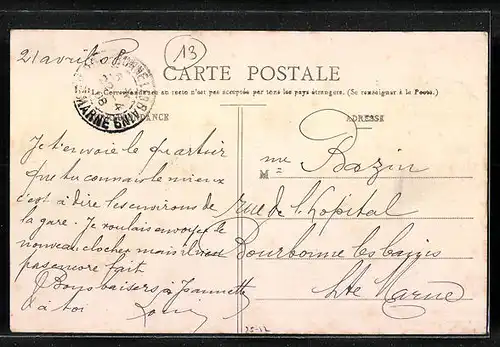 21 avril 08
13
CARTE POSTALE
La Correspondance au recto n'est pas acceptée par tous les pays étrangers. (Se renseigner à la Poste.)
DANCE
ADRESSE
MARNE
Je t'envoie le quartier
que tu connais le mieux
c'est à dire les environs de
la gare. Je voulais envoyer le
nouveau clocher mais il n'est
pas encore fait
Bons baisers à Jeannette
à toi
M me Bazin
rue de l'hopital
Bourbonne les bains
Hte Marne